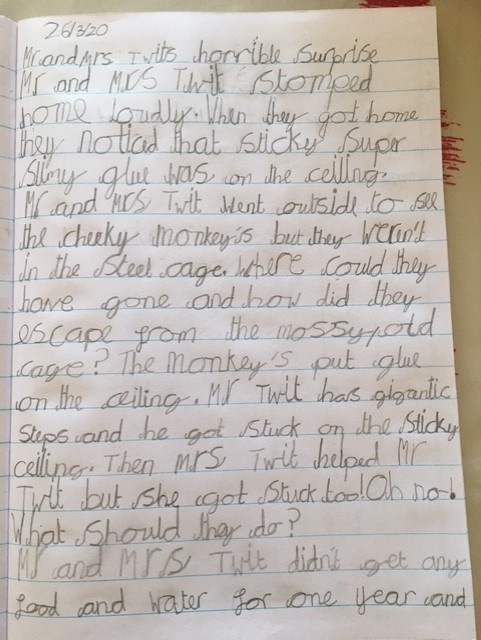 26/3/20
Mr and Mrs Twits horrible surprise
Mr and Mrs Twit stomped
home loudly. When they got home
they noticed that sticky super
slimy glue was on the ceiling.
Mr and Mrs Twit went outside to see
the cheeky monkey's but they weren't
in the steel cage. Where could they
have gone and how did they
escape from the mossy, old
cage? The Monkey's put glue
on the ceiling. Mr Twit has gigantic
steps and he got stuck on the sticky
ceiling. Then Mrs Twit helped Mr
Twit but she got stuck too! Oh no!
What should they do?
Mr and Mrs Twit didn't get any
food and water for one year and